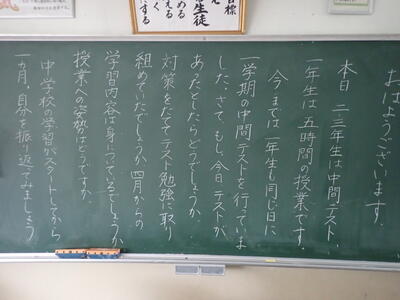 目標
え
生徒
める
える
く
にする
おはようございます。
本日、二三年生は中間テスト、
一年生は五時間の授業です。
今までは一年生も同じ日に
一学期の中間テストを行っていま
した。さて、もし、今日テストが
あったとしたらどうでしょうか。
対策をたててテスト勉強に取り
組めていたでしょうか。四月からの
学習内容は身についているでしょうか。
授業への姿勢はどうですか。
中学校の学習がスタートしてから
一カ月。自分を振り返ってみましょう